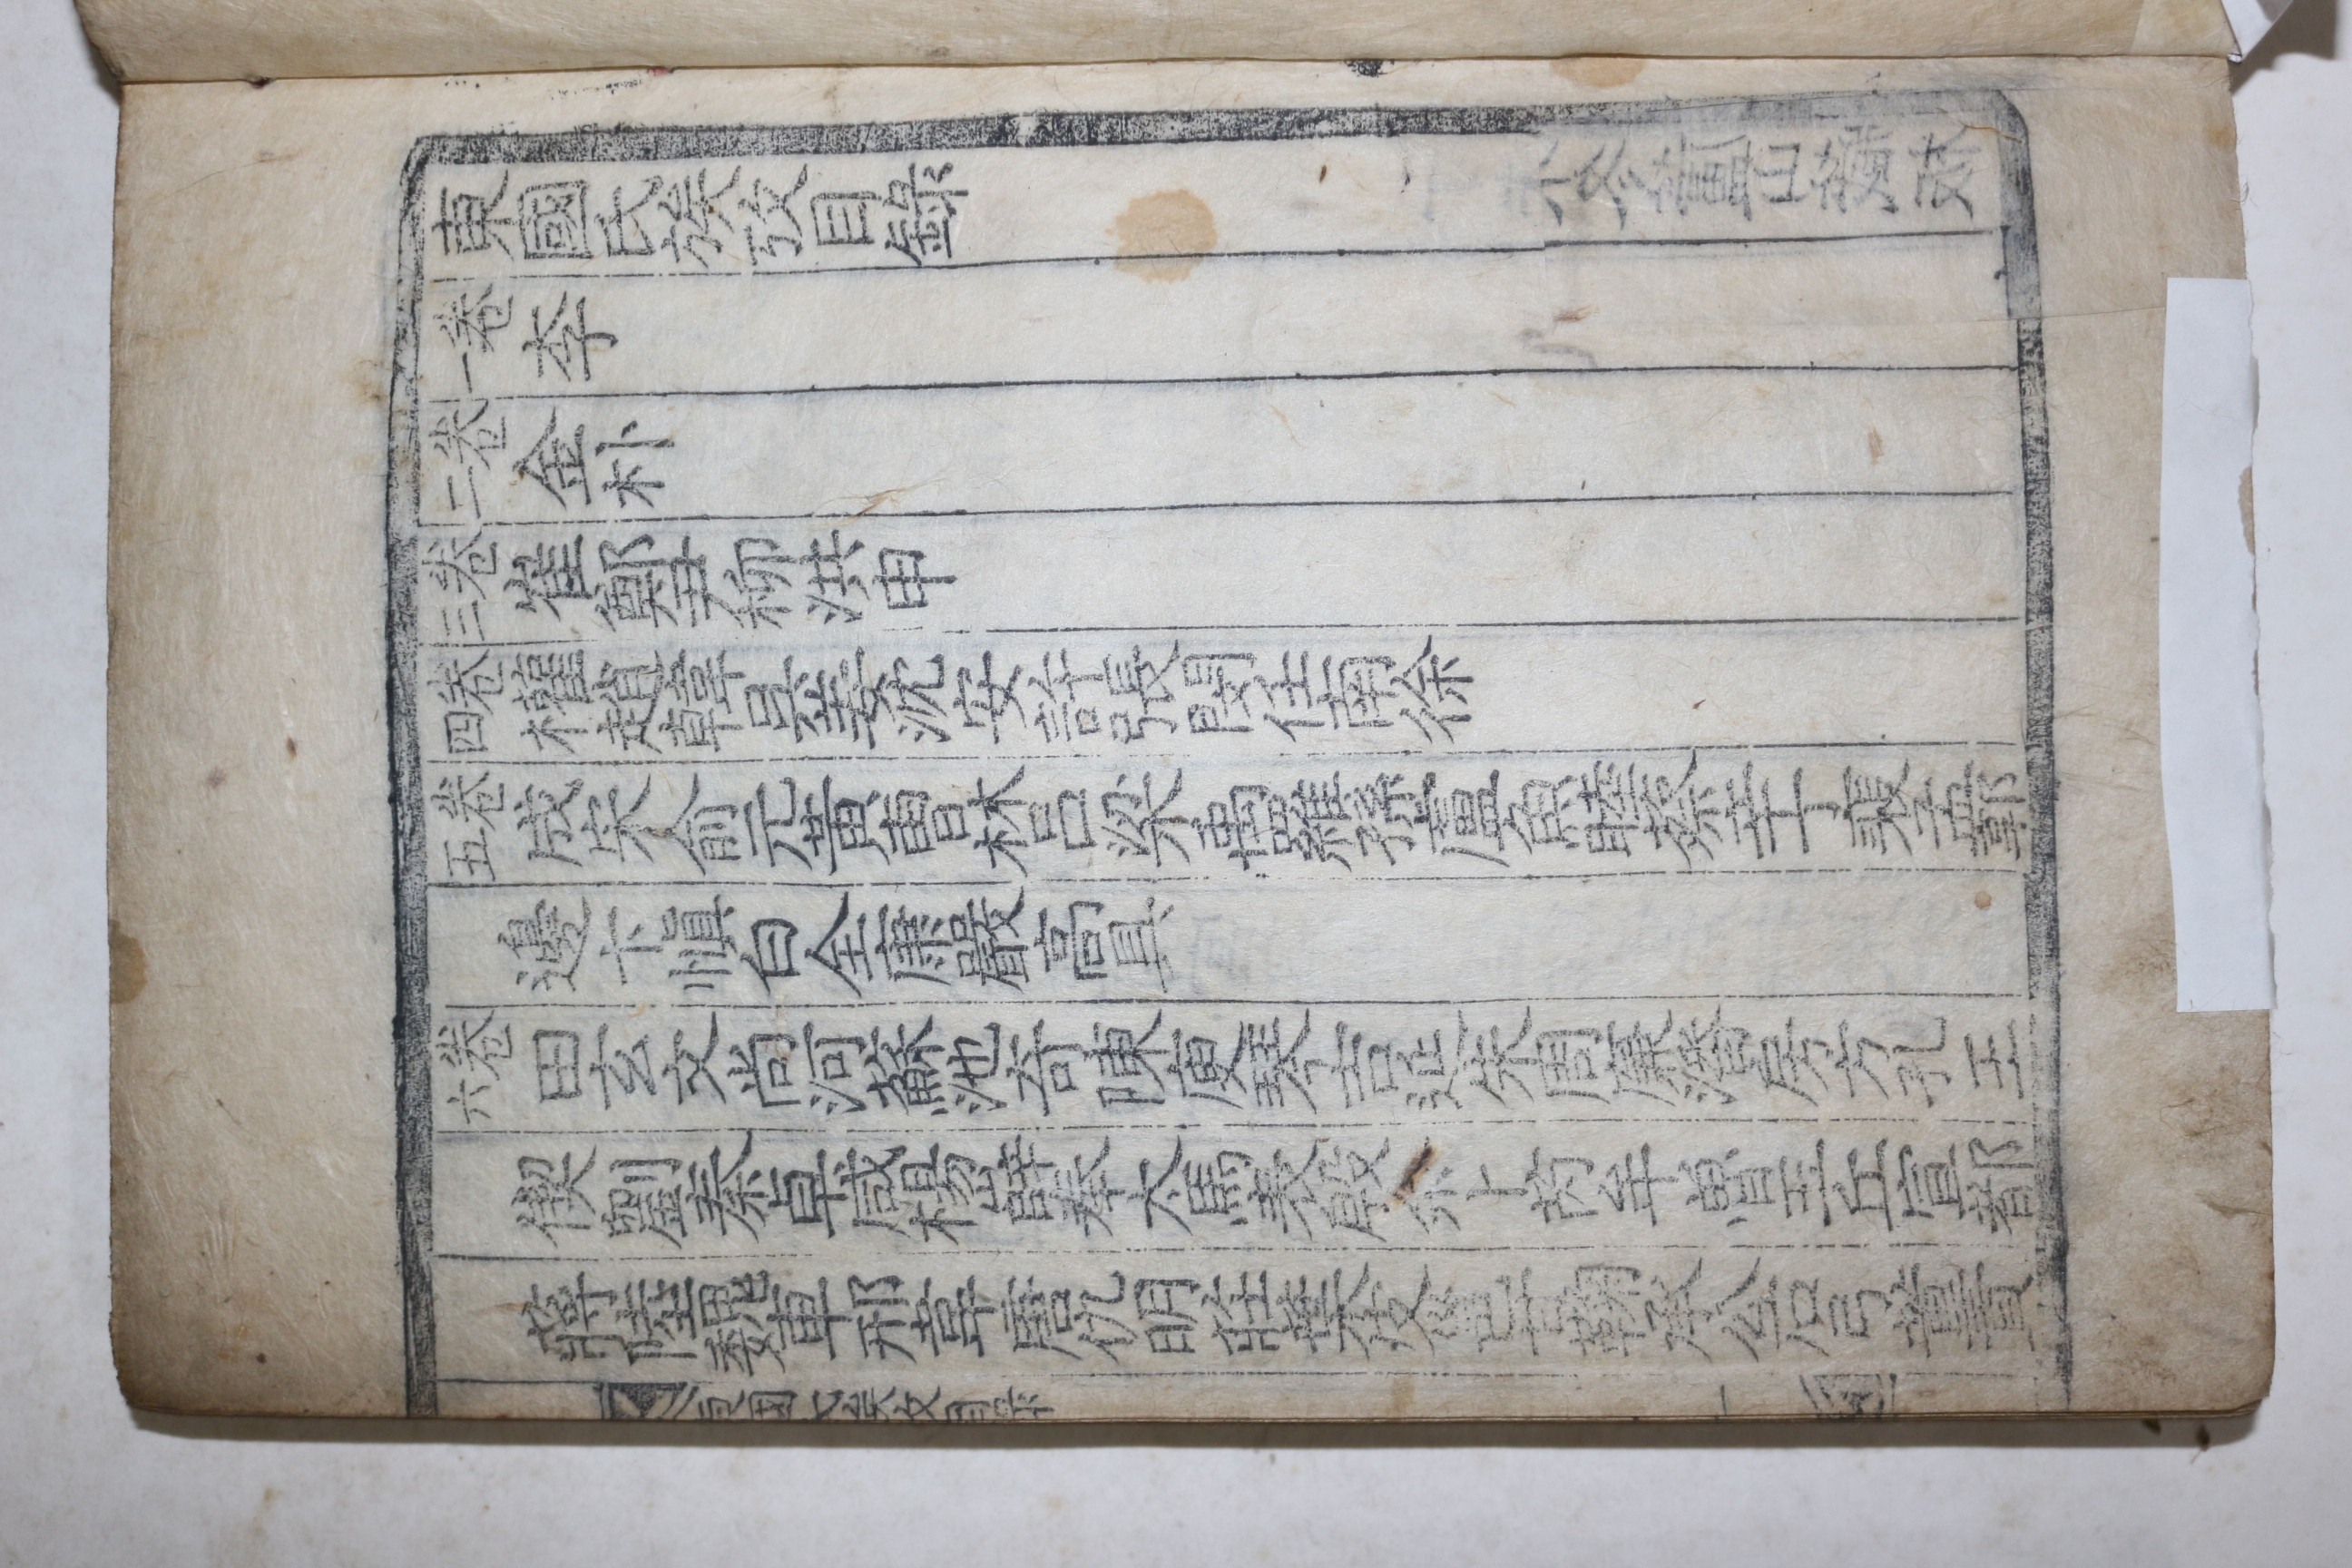 東國氏族攷目錄
卷一 李
卷二 金朴
卷三 崔鄭尹柳洪申
卷四 權趙韓吳姜沈安許張閔任南徐
卷五 成宋俞元黃曹林呂梁禹羅孫盧魚睦蔡辛丁裴孟郭
邊卞愼白全康嚴高具
卷六 田玄文尚河蘇池奇陳庾琴吉延朱周廉潘房方孔王
偰劉秦卓咸楊薛奉太馬表殷卜芮牟魯玉丘宣都
蔣陸魏車邢韋唐仇明莊葉皮邕甘鞠承公石弓董